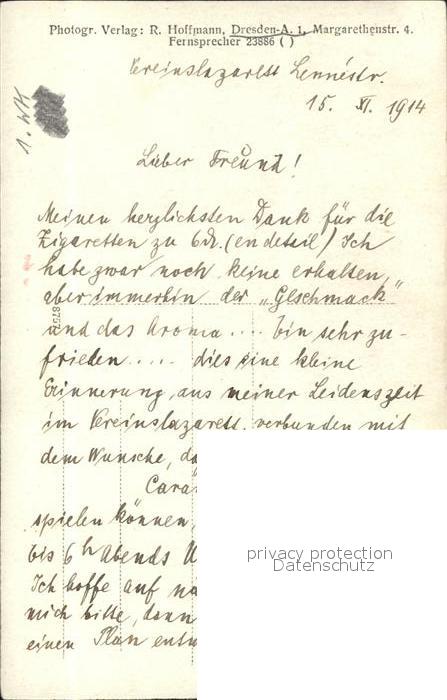 Photogr. Verlag: R. Hoffmann, Dresden-A. 1, Margarethenstr. 4.
Fernsprecher 23886 ( )
Vereinslazarett Lennéstr.
15. XI. 1914
1. WK
Lieber Freund!
Meinen herzlichsten Dank für die
Zigaretten zu 6 (en deteil) Ich
habe zwar noch keine erhalten,
aber immerhin der „Geschmack"
und das Aroma .... bin sehr zu-
frieden .... dies eine kleine
Erinnerung aus meiner Leidenszeit
im Vereinslazarett, verbunden mit
dem Wunsche, da
Cara
spielen können,
bis 6h Abends
Ich hoffe auf
mich bitte, dann
einen Plan entw
875
privacy protection
Datenschutz